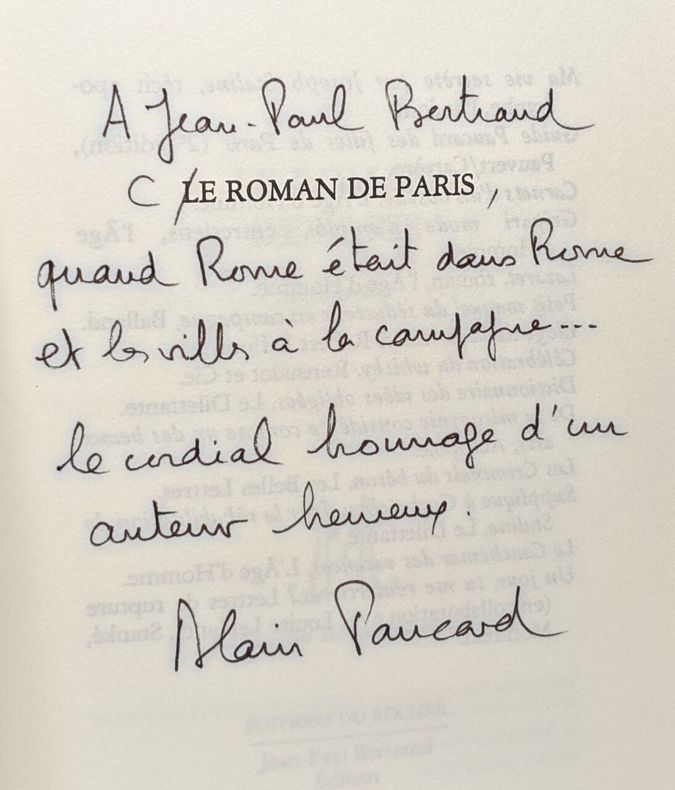 A Jean-Paul Bertrand
C LE ROMAN DE PARIS,
quand Rome était dans Rome
et les villes à la campagne...
le cordial hommage d'un
auteur heureux.
Alain Paucard